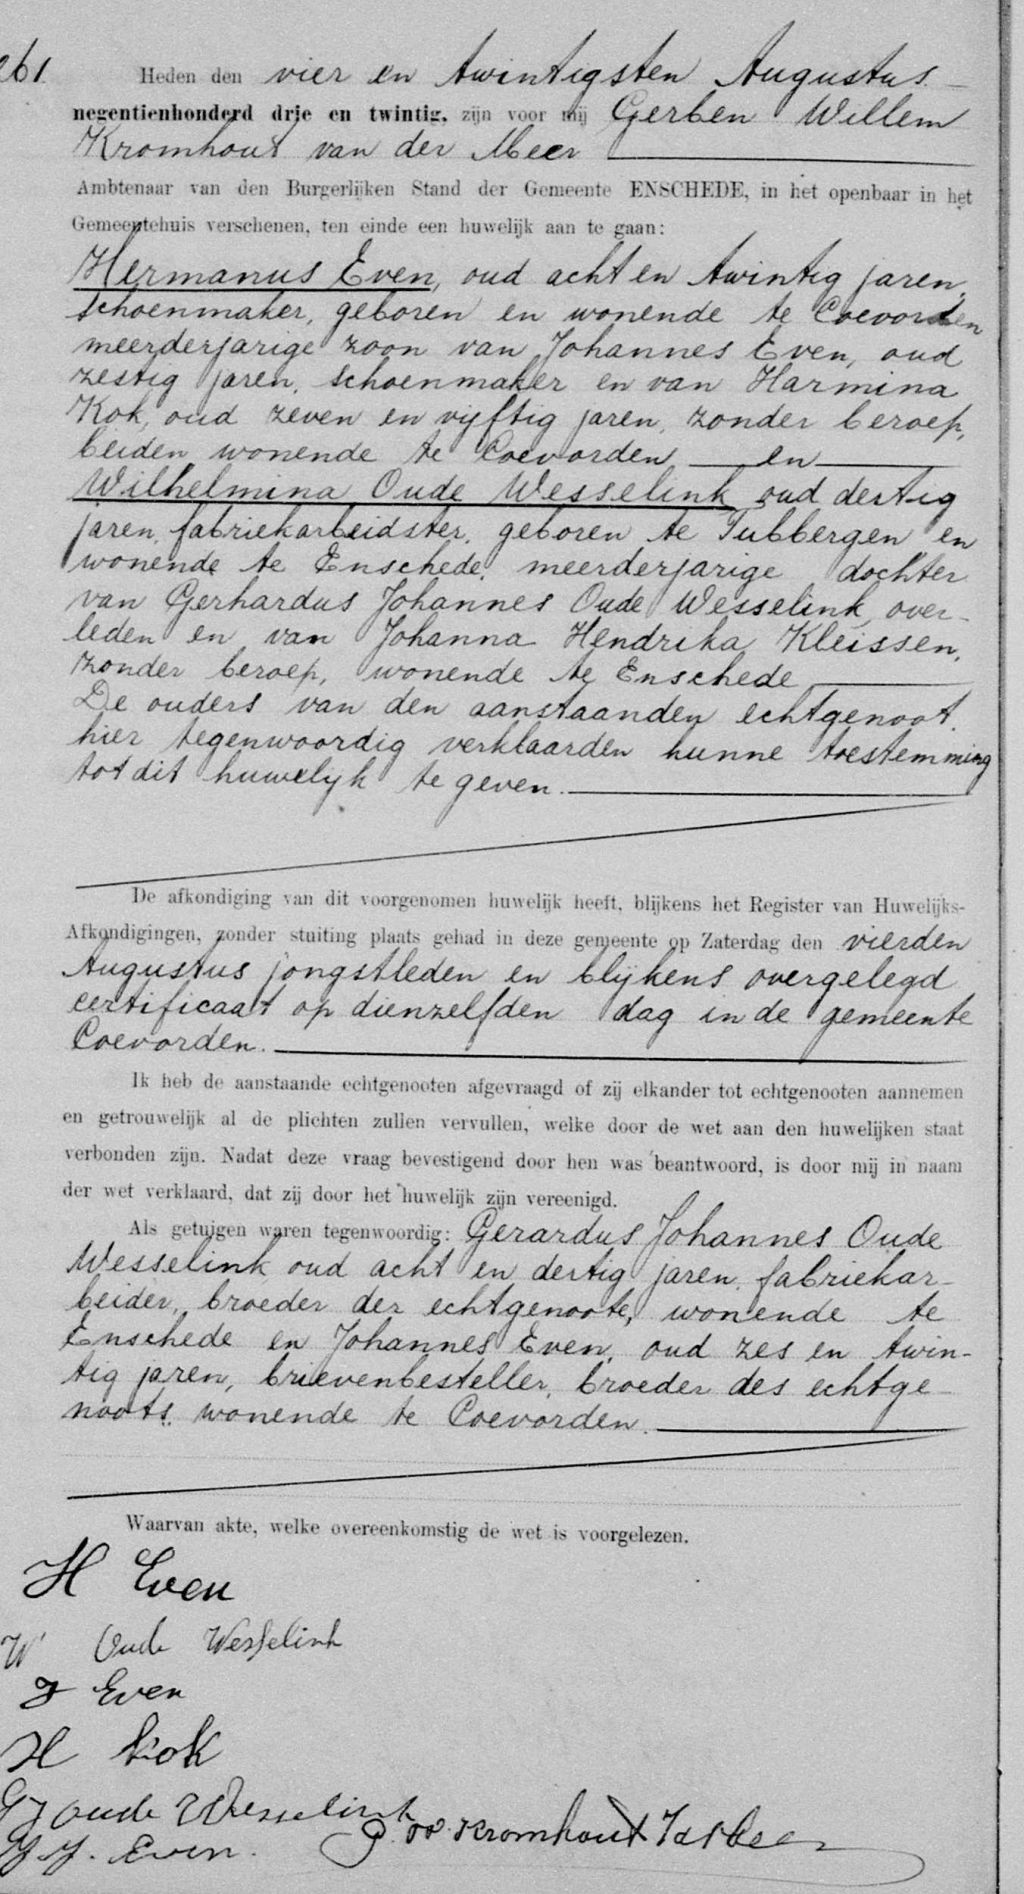 261.
Heden den vier en twintigsten Augustus
negentienhonderd drie en twintig, zijn voor mij Gerben Willem
Kromhout van der Meer
Ambtenaar van den Burgerlijken Stand der Gemeente ENSCHEDE, in het openbaar in het
Gemeentehuis verschenen, ten einde een huwelijk aan te gaan:
Hermanus Even, oud acht en twintig jaren,
schoenmaker, geboren en wonende te Coevorden
meerderjarige zoon van Johannes Even, oud
zestig jaren, schoenmaker en van Harmina
Kok, oud zeven en vijftig jaren, zonder beroep,
beiden wonende te Coevorden en
Wilhelmina Oude Wesselink oud dertig
jaren, fabriekarbeidster, geboren te Tubbergen en
wonende te Enschede, meerderjarige dochter
van Gerhardus Johannes Oude Wesselink, over-
leden en van Johanna Hendrika Kleissen,
zonder beroep, wonende te Enschede
De ouders van den aanstaanden echtgenoot,
hier tegenwoordig verklaarden hunne toestemming
tot dit huwelijk te geven.
De afkondiging van dit voorgenomen huwelijk heeft, blijkens het Register van Huwelijks-
Afkondigingen, zonder stuiting plaats gehad in deze gemeente op Zaterdag den vierden
Augustus jongstleden en blijkens overgelegd
certificaat op dienzelfden dag in de gemeente
Coevorden.
Ik heb de aanstaande echtgenooten afgevraagd of zij elkander tot echtgenooten aannemen
en getrouwelijk al de plichten zullen vervullen, welke door de wet aan den huwelijken staat
verbonden zijn. Nadat deze vraag bevestigend door hen was beantwoord, is door mij in naam
der wet verklaard, dat zij door het huwelijk zijn vereenigd.
Als getuigen waren tegenwoordig: Gerardus Johannes Oude
Wesselink oud acht en dertig jaren, fabriekar-
beider, broeder der echtgenoote, wonende te
Enschede en Johannes Even, oud zes en twin-
tig jaren, brievenbesteller, broeder des echtge-
noots, wonende te Coevorden.
Waarvan akte, welke overeenkomstig de wet is voorgelezen.
H Even
W Oude Wesselink
J Even
H Kok
G J oude Wesselink
J. J. Even. Kromhout